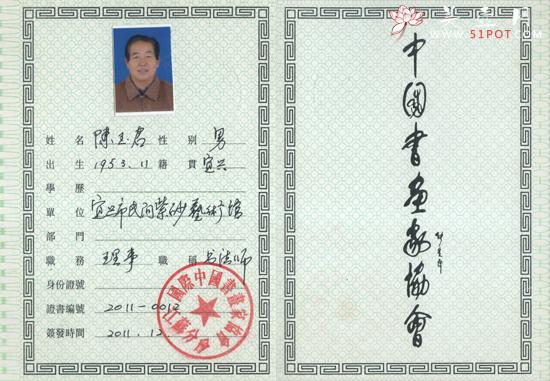 姓名 陳玉君 性別 男
出生 1953.11 籍貫 宜兴
學歷
單位 宜兴市民间紫砂藝術馆
部門
職務 理事 職稱 书法师
身份證號
證書編號 2011-0012
簽發時間 2011.12.
國際中國書畫家協會
江蘇分會
中國書画家協會
美壶网
WWW.51POT.COM